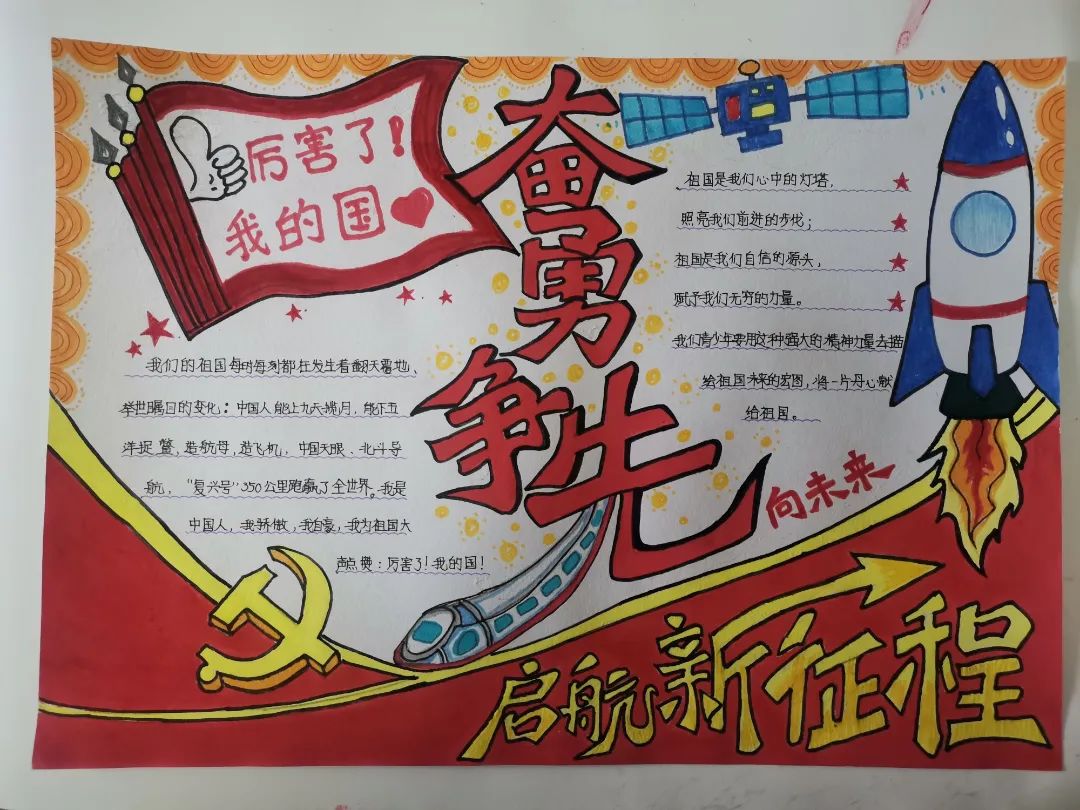 厉害了！
我的国
奋勇争先
祖国是我们心中的灯塔，
照亮我们前进的步伐；
祖国是我们自信的源头，
赋予我们无穷的力量。
我们青少年要用这种强大的精神力量去描
绘祖国未来的宏图，将一片丹心献
给祖国。
我们的祖国每时每刻都在发生着翻天覆地、
举世瞩目的变化：中国人能上九天揽月，能下五
洋捉鳖，造航母，造飞机，中国天眼、北斗导
航，“复兴号”350公里跑赢了全世界。我是
中国人，我骄傲，我自豪，我为祖国大
声点赞：厉害了！我的国！
向未来
启航新征程